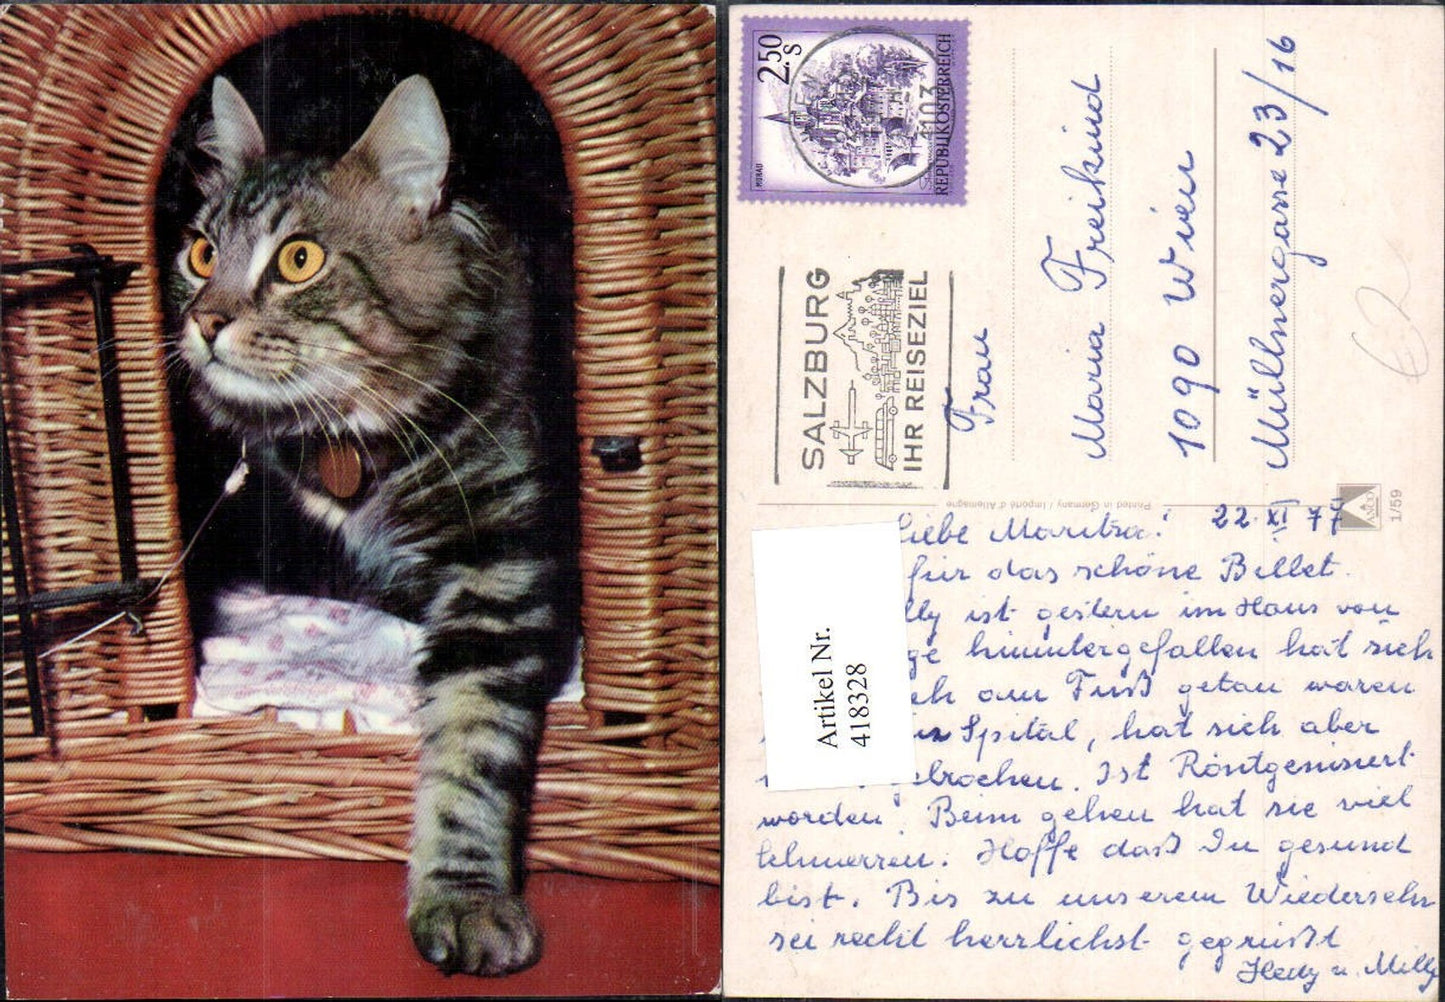 2.50
S
MURAU
REPUBLIK ÖSTERREICH
SALZBURG
IHR REISEZIEL
Frau
Maria Freikind
1090 Wien
Müllnergasse 23/16
€2
Printed in Germany / Importé d'Allemagne
1/59
Artikel Nr.
418328
Liebe Maritza! 22. XI 77
für das schöne Billet.
lly ist gestern im Haus von
ge hinuntergefallen hat sich
am Fuß getan waren
Spital, hat sich aber
gebrochen. Ist Röntgenisiert
worden. Beim gehen hat sie viel
Schmerzen. Hoffe daß Du gesund
bist. Bis zu unserem Wiedersehn
sei recht herzlichst gegrüßt
Hedy u. Milly